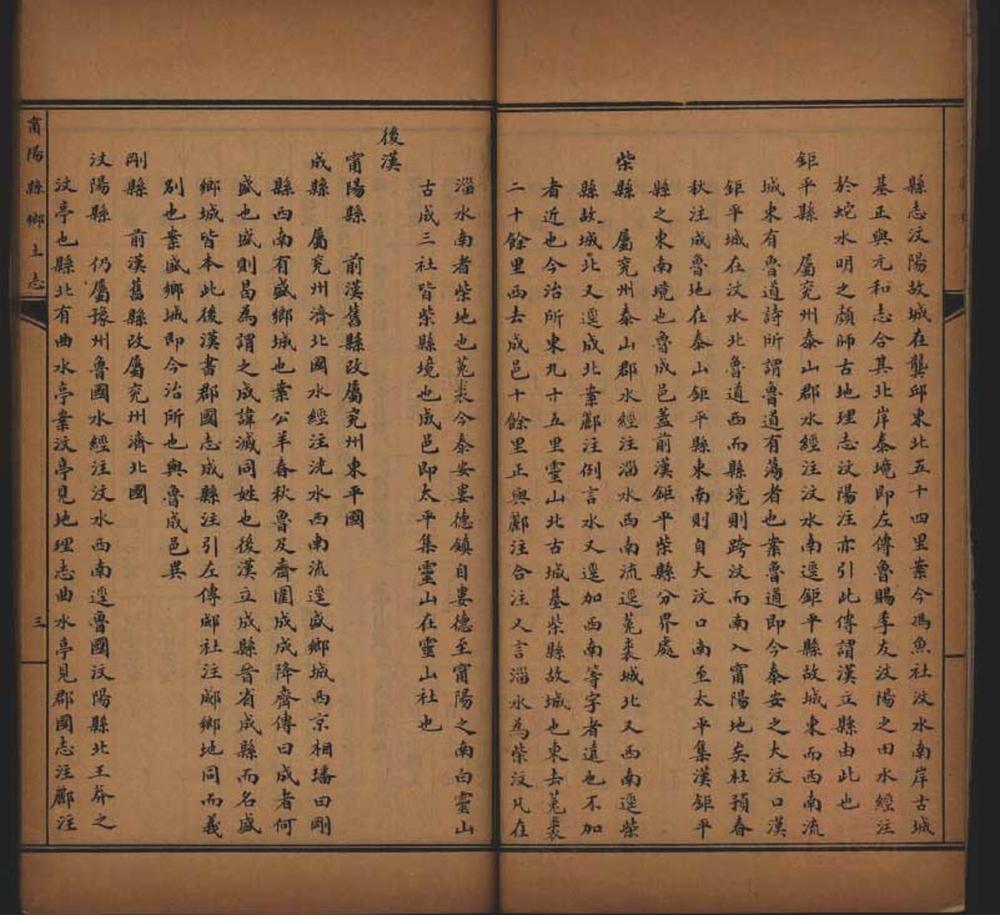 縣志汶陽故城在龔邱東北五十四里案今馮魚社汶水南岸古城
基正與元和志合其北岸泰境即左傳魯賜季友汶陽之田水經注
於蛇水明之顏師古地理志汶陽注亦引此傳謂漢立縣由此也
鉅平縣　屬兖州泰山郡水經注汶水南逕鉅平縣故城東而西南流
城東有魯道詩所謂魯道有蕩者也案魯道即今泰安之大汶口漢
鉅平城在汶水北魯道西而縣境則跨汶而南入甯陽地矣杜預春
秋注成魯地在泰山鉅平縣東南則自大汶口南至太平集漢鉅平
縣之東南境也魯成邑蓋前漢鉅平柴縣分界處
柴縣　屬兖州泰山郡水經注淄水西南流逕菟裘城北又西南逕柴
縣故城北又逕成北案酈注例言水又逕加西南等字者遠也不加
者近也今治所東九十五里靈山北古城基柴縣故城也東去菟裘
二十餘里西去成邑十餘里正與酈注合注又言淄水為柴汶凡在
淄水南者柴地也菟裘今泰安婁德鎮自婁德至甯陽之南白靈山
古成三社皆柴縣境也成邑即太平集靈山在靈山社也
後漢
甯陽縣　前漢舊縣改屬兖州東平國
成縣　屬兖州濟北國水經注洸水西南流逕盛鄉城西京相璠曰剛
縣西南有盛鄉城也案公羊春秋魯及齊圍成成降齊傳曰成者何
盛也盛則曷為謂之成諱滅同姓也後漢立成縣晉省成縣而名盛
鄉城皆本此後漢書郡國志成縣注引左傳郕社注郕鄉地同而義
別也案盛鄉城即今治所也與魯成邑異
剛縣　前漢舊縣改屬兖州濟北國
汶陽縣　仍屬豫州魯國水經注汶水西南逕魯國汶陽縣北王莽之
汶亭也縣北有曲水亭案汶亭見地理志曲水亭見郡國志注酈注
甯陽縣鄉土志
三